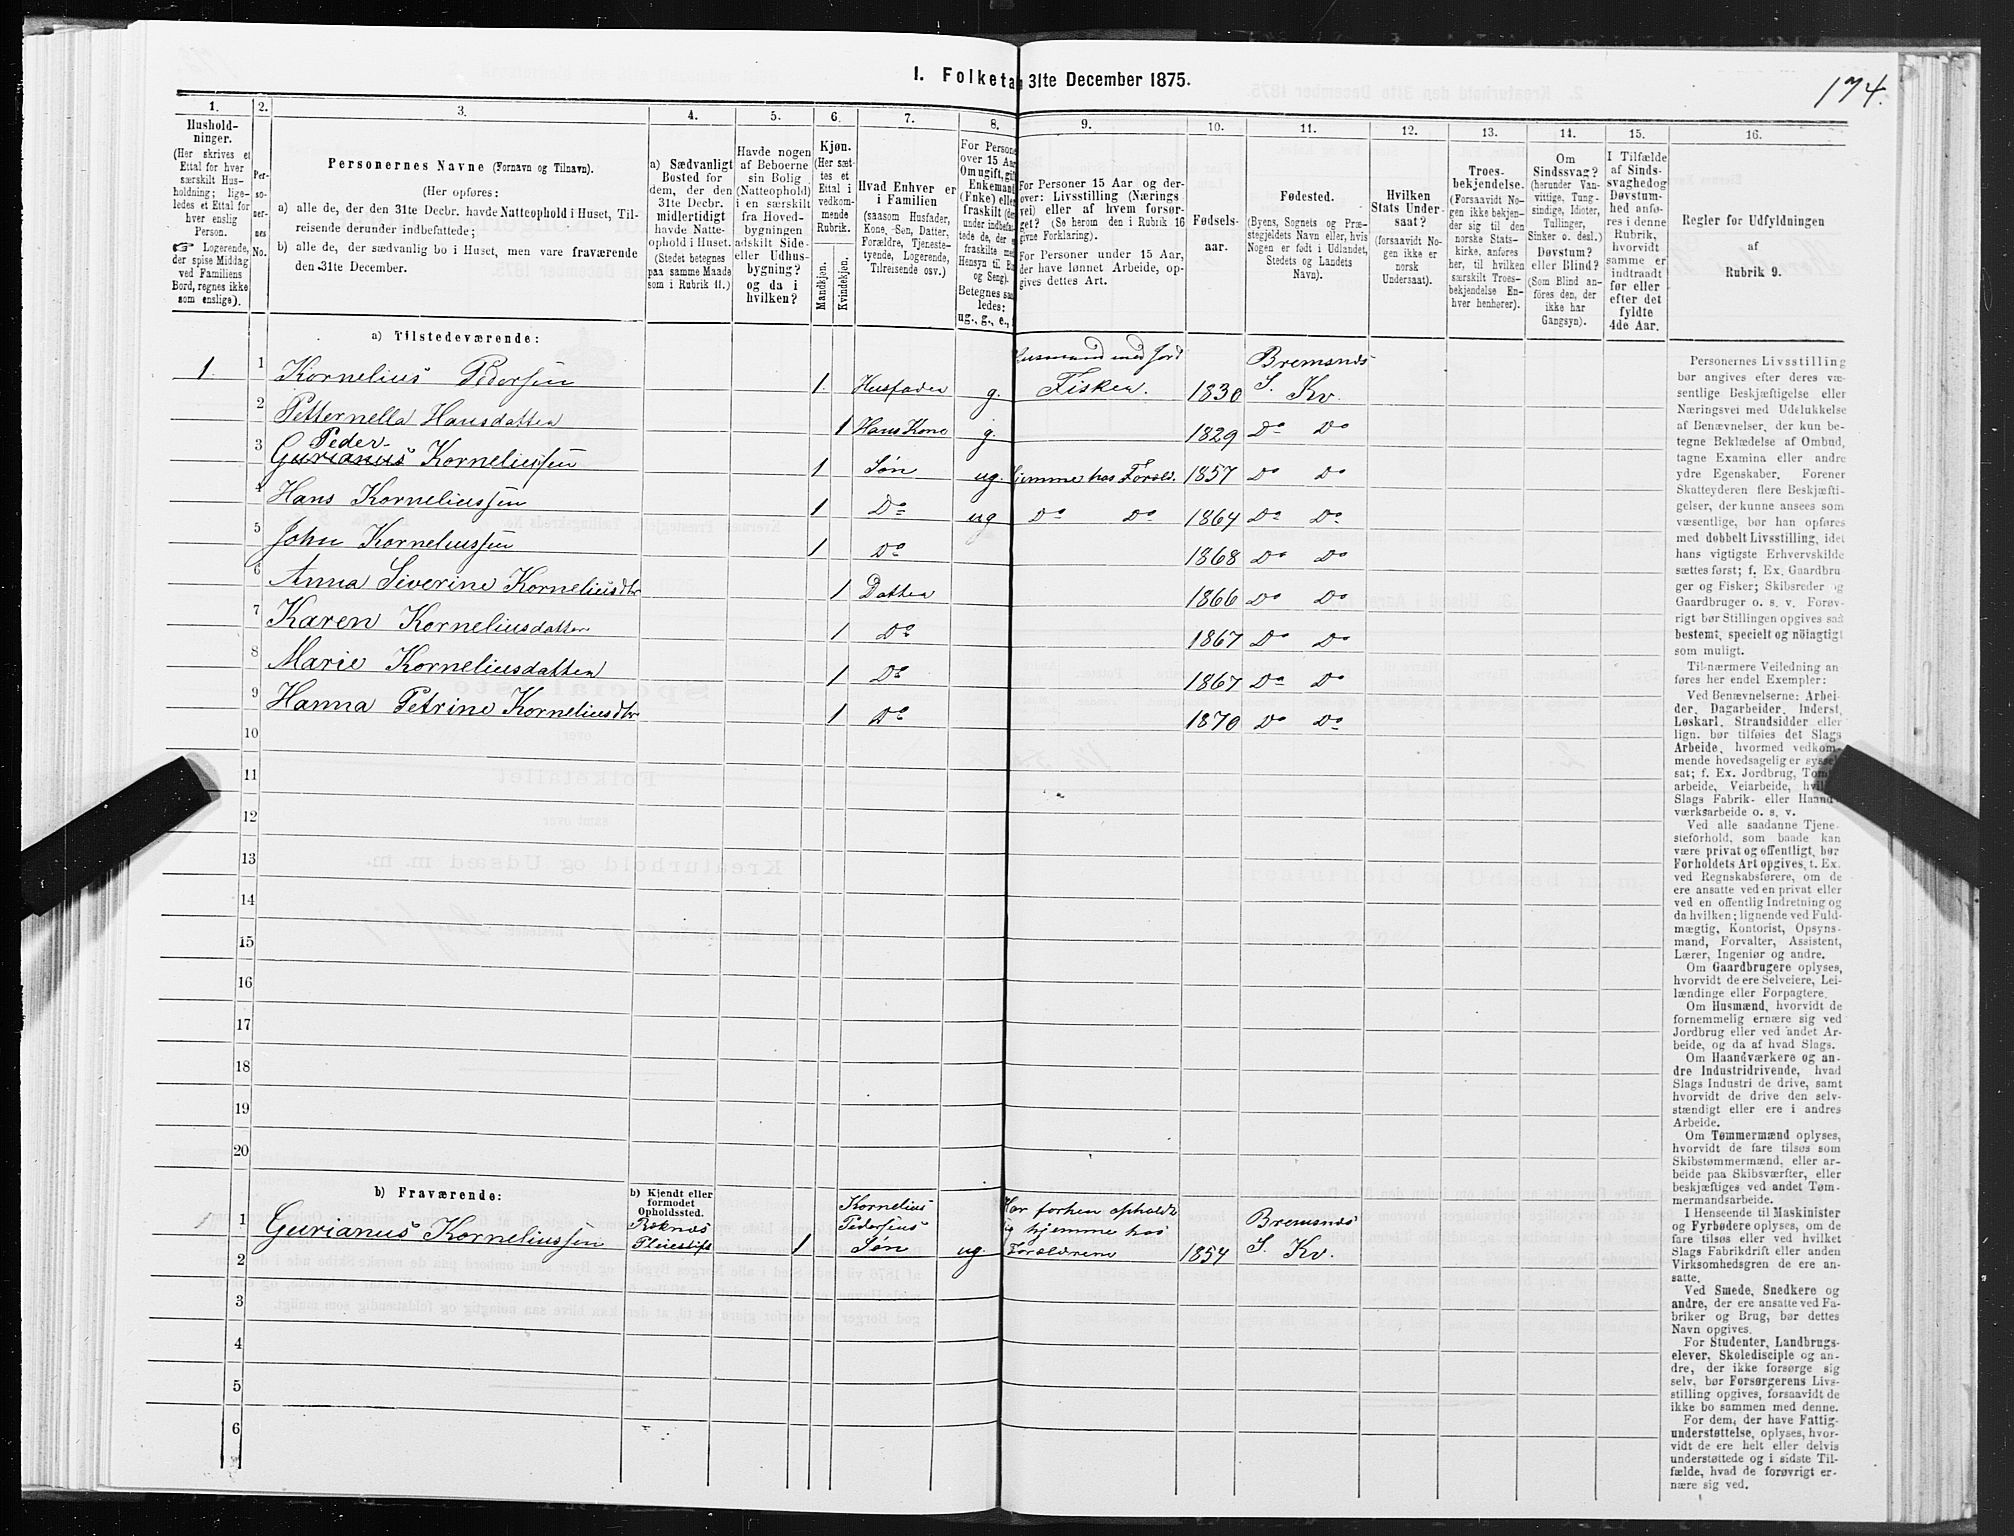 174.
I. Folketa 31te December 1875.
1. 2. 3. 4. 5. 6. 7. 8. 9. 10. 11. 12. 13. 14. 15. 16.
Hushold-
ninger.
(Her skrives et
Ettal for hver
særskilt Hus-
holdning; lige-
ledes et Ettal for
hver enslig
Person.
☞ Logerende,
der spise Middag
ved Familiens
Bord, regnes ikke
som enslige).
Per-
so-
ner-
nes
No.
Personernes Navne (Fornavn og Tilnavn).
(Her opføres:
a) alle de, der den 31te Decbr. havde Natteophold i Huset, Til-
reisende derunder indbefattede;
b) alle de, der sædvanlig bo i Huset, men vare fraværende
den 31te December.
a) Sædvanligt
Bosted for
dem, der den
31te Decbr.
midlertidigt
havde Natte-
ophold i Huset.
(Stedet betegnes
paa samme Maade
som i Rubrik 11.)
Havde nogen
af Beboerne
sin Bolig
(Natteophold)
i en særskilt
fra Hoved-
bygningen
adskilt Side-
eller Udhus-
bygning?
og da i
hvilken?
Kjøn.
(Her sæt-
tes et
Ettal i
vedkom-
mende
Rubrik.
Mandkjøn.
Kvindekjøn.
Hvad Enhver er
i Familien
(saasom Husfader,
Kone, Søn, Datter,
Forældre, Tjeneste-
tyende, Logerende,
Tilreisende osv.)
For Persone
over 15 Aar
Om ugift, gif
Enkemand
(Enke) elle
fraskilt (de
under indbefat-
tede de, der e
fraskilte me
Hensyn til Bo
og Seng).
Betegnes saa
ledes:
ug., g., e.,
For Personer 15 Aar og der-
over: Livsstilling (Nærings
vei) eller af hvem forsør-
get? (Se herom den i Rubrik 16
givne Forklaring).
For Personer under 15 Aar,
der have lønnet Arbeide, op-
gives dettes Art.
Fødsels-
aar.
Fødested.
(Byens, Sognets og Præ-
stegjeldets Navn eller, hvis
Nogen er født i Udlandet,
Stedets og Landets
Navn).
Hvilken
Stats Under-
saat?
(forsaavidt No-
gen ikke er
norsk
Undersaat).
Troes-
bekjendelse.
(Forsaavidt No-
gen ikke bekjen-
der sig til den
norske Stats-
kirke, anføres
her, til hvilken
særskilt Troes-
bekjendelse En-
hver henhører).
Om
Sindssvag?
(herunder Van-
vittige, Tung-
sindige, Idioter,
Tullinger,
Sinker o. desl.)
Døvstum?
eller Blind?
(Som Blind an-
føres den, der
ikke har
Gangsyn).
I Tilfælde
af Sinds-
svaghed og
Døvstum-
hed anfø-
res i denne
Rubrik,
hvorvidt
samme er
indtraadt
før eller
efter det
fyldte
4de Aar.
Regler for Udfyldningen
af
Rubrik 9.
a) Tilstedeværende:
1. 1 Kornelius Pedersen 1. Husfader g. Husmand med Jord Fisker. 1830 Bremsnes S. Kv.
2 Petternella Hansdatter 1 Hans Kone g. 1829 Do Do
3 Peder Gurianus Korneliussen 1 Søn ug. hjemme hos Foræld. 1857 Do Do
4 Hans Korneliussen 1 Do ug Do Do 1864 Do Do
5 John Korneliussen 1 Do 1868 Do Do
6 Anna Siverine Korneliusdtr 1 Datter 1866 Do Do
7 Karen Korneliusdatter 1 Do 1867 Do Do
8 Marie Korneliusdatter 1 Do 1867 Do Do
9 Hanna Petrine Korneliusdtr 1 Do 1870 Do Do
10
11
12
13
14
15
16
17
18
19
20
b) Fraværende:
b) Kjendt eller
formodet
Opholdssted.
1 Gurianus Korneliussen 1 Kornelius Pedersens Søn ug. Har forhen opholdt sig hjemme hos Forældrene 1854 Bremsnes S. Kv.
2
3
4
5
6
Personernes Livsstilling
bør angives efter deres væ-
sentlige Beskjæftigelse eller
Næringsvei med Udelukkelse
af Benævnelser, der kun be-
tegne Beklædelse af Ombud,
tagne Examina eller andre
ydre Egenskaber. Forener
Skatteyderen flere Beskjæfti-
gelser, der kunne ansees som
væsentlige, bør han opføres
med dobbelt Livsstilling, idet
hans vigtigste Erhvervskilde
sættes først; f. Ex. Gaardbru-
ger og Fisker; Skibsreder og
Gaardbruger o. s. v. Forøv-
rigt bør Stillingen opgives saa
bestemt, specielt og nöiagtigt
som muligt.
Til nærmere Veiledning an
føres her endel Exempler:
Ved Benævnelserne: Arbei-
der, Dagarbeider, Inderst,
Løskarl, Strandsidder eller
lign. bør tilføies det Slags
Arbeide, hvormed vedkom-
mende hovedsagelig er syssel
sat; f. Ex. Jordbrug, Tomt
arbeide, Veiarbeide, hvil
Slags Fabrik- eller Haand-
værksarbeide o. s. v.
Ved alle saadanne Tjene-
steforhold, som baade kan
være privat og offentligt, bør
Forholdets Art opgives, t. Ex.
ved Regnskabsførere, om de
ere ansatte ved en privat eller
ved en offentlig Indretning og
da hvilken; lignende ved Fuld-
mægtig, Kontorist, Opsyns-
mand, Forvalter, Assistent,
Lærer, Ingeniør og andre.
Om Gaardbrugere oplyses,
hvorvidt de ere Selveiere, Lei-
lændinge eller Forpagtere.
Om Husmænd, hvorvidt de
fornemmelig ernære sig ved
Jordbrug eller ved andet Ar-
beide, og da af hvad Slags.
Om Haandværkere og an-
dre Industridrivende, hvad
Slags Industri de drive, samt
hvorvidt de drive den selv-
stændigt eller ere i andres
Arbeide.
Om Tømmermænd oplyses,
hvorvidt de fare tilsøs som
Skibstømmermænd, eller ar-
beide paa Skibsværfter, eller
beskjæftiges ved andet Tøm-
mermandsarbeide.
I Henseende til Maskinister
og Fyrbødere oplyses, om de
fare tilsøs eller ved hvilket
Slags Fabrikdrift eller anden
Virksomhedsgren de ere an-
satte.
Ved Smede, Snedkere og
andre, der ere ansatte ved Fa-
briker og Brug, bør dettes
Navn opgives.
For Studenter, Landbrugs-
elever, Skoledisciple og an-
dre, der ikke forsørge sig
selv, bør Forsørgerens Livs-
stilling opgives, forsaavidt de
ikke bo sammen med denne.
For dem, der have Fattig-
understøttelse, oplyses, hvor-
vidt de ere helt eller delvis
understøttede og i sidste Til-
fælde, hvad de forøvrigt er-
nære sig ved.